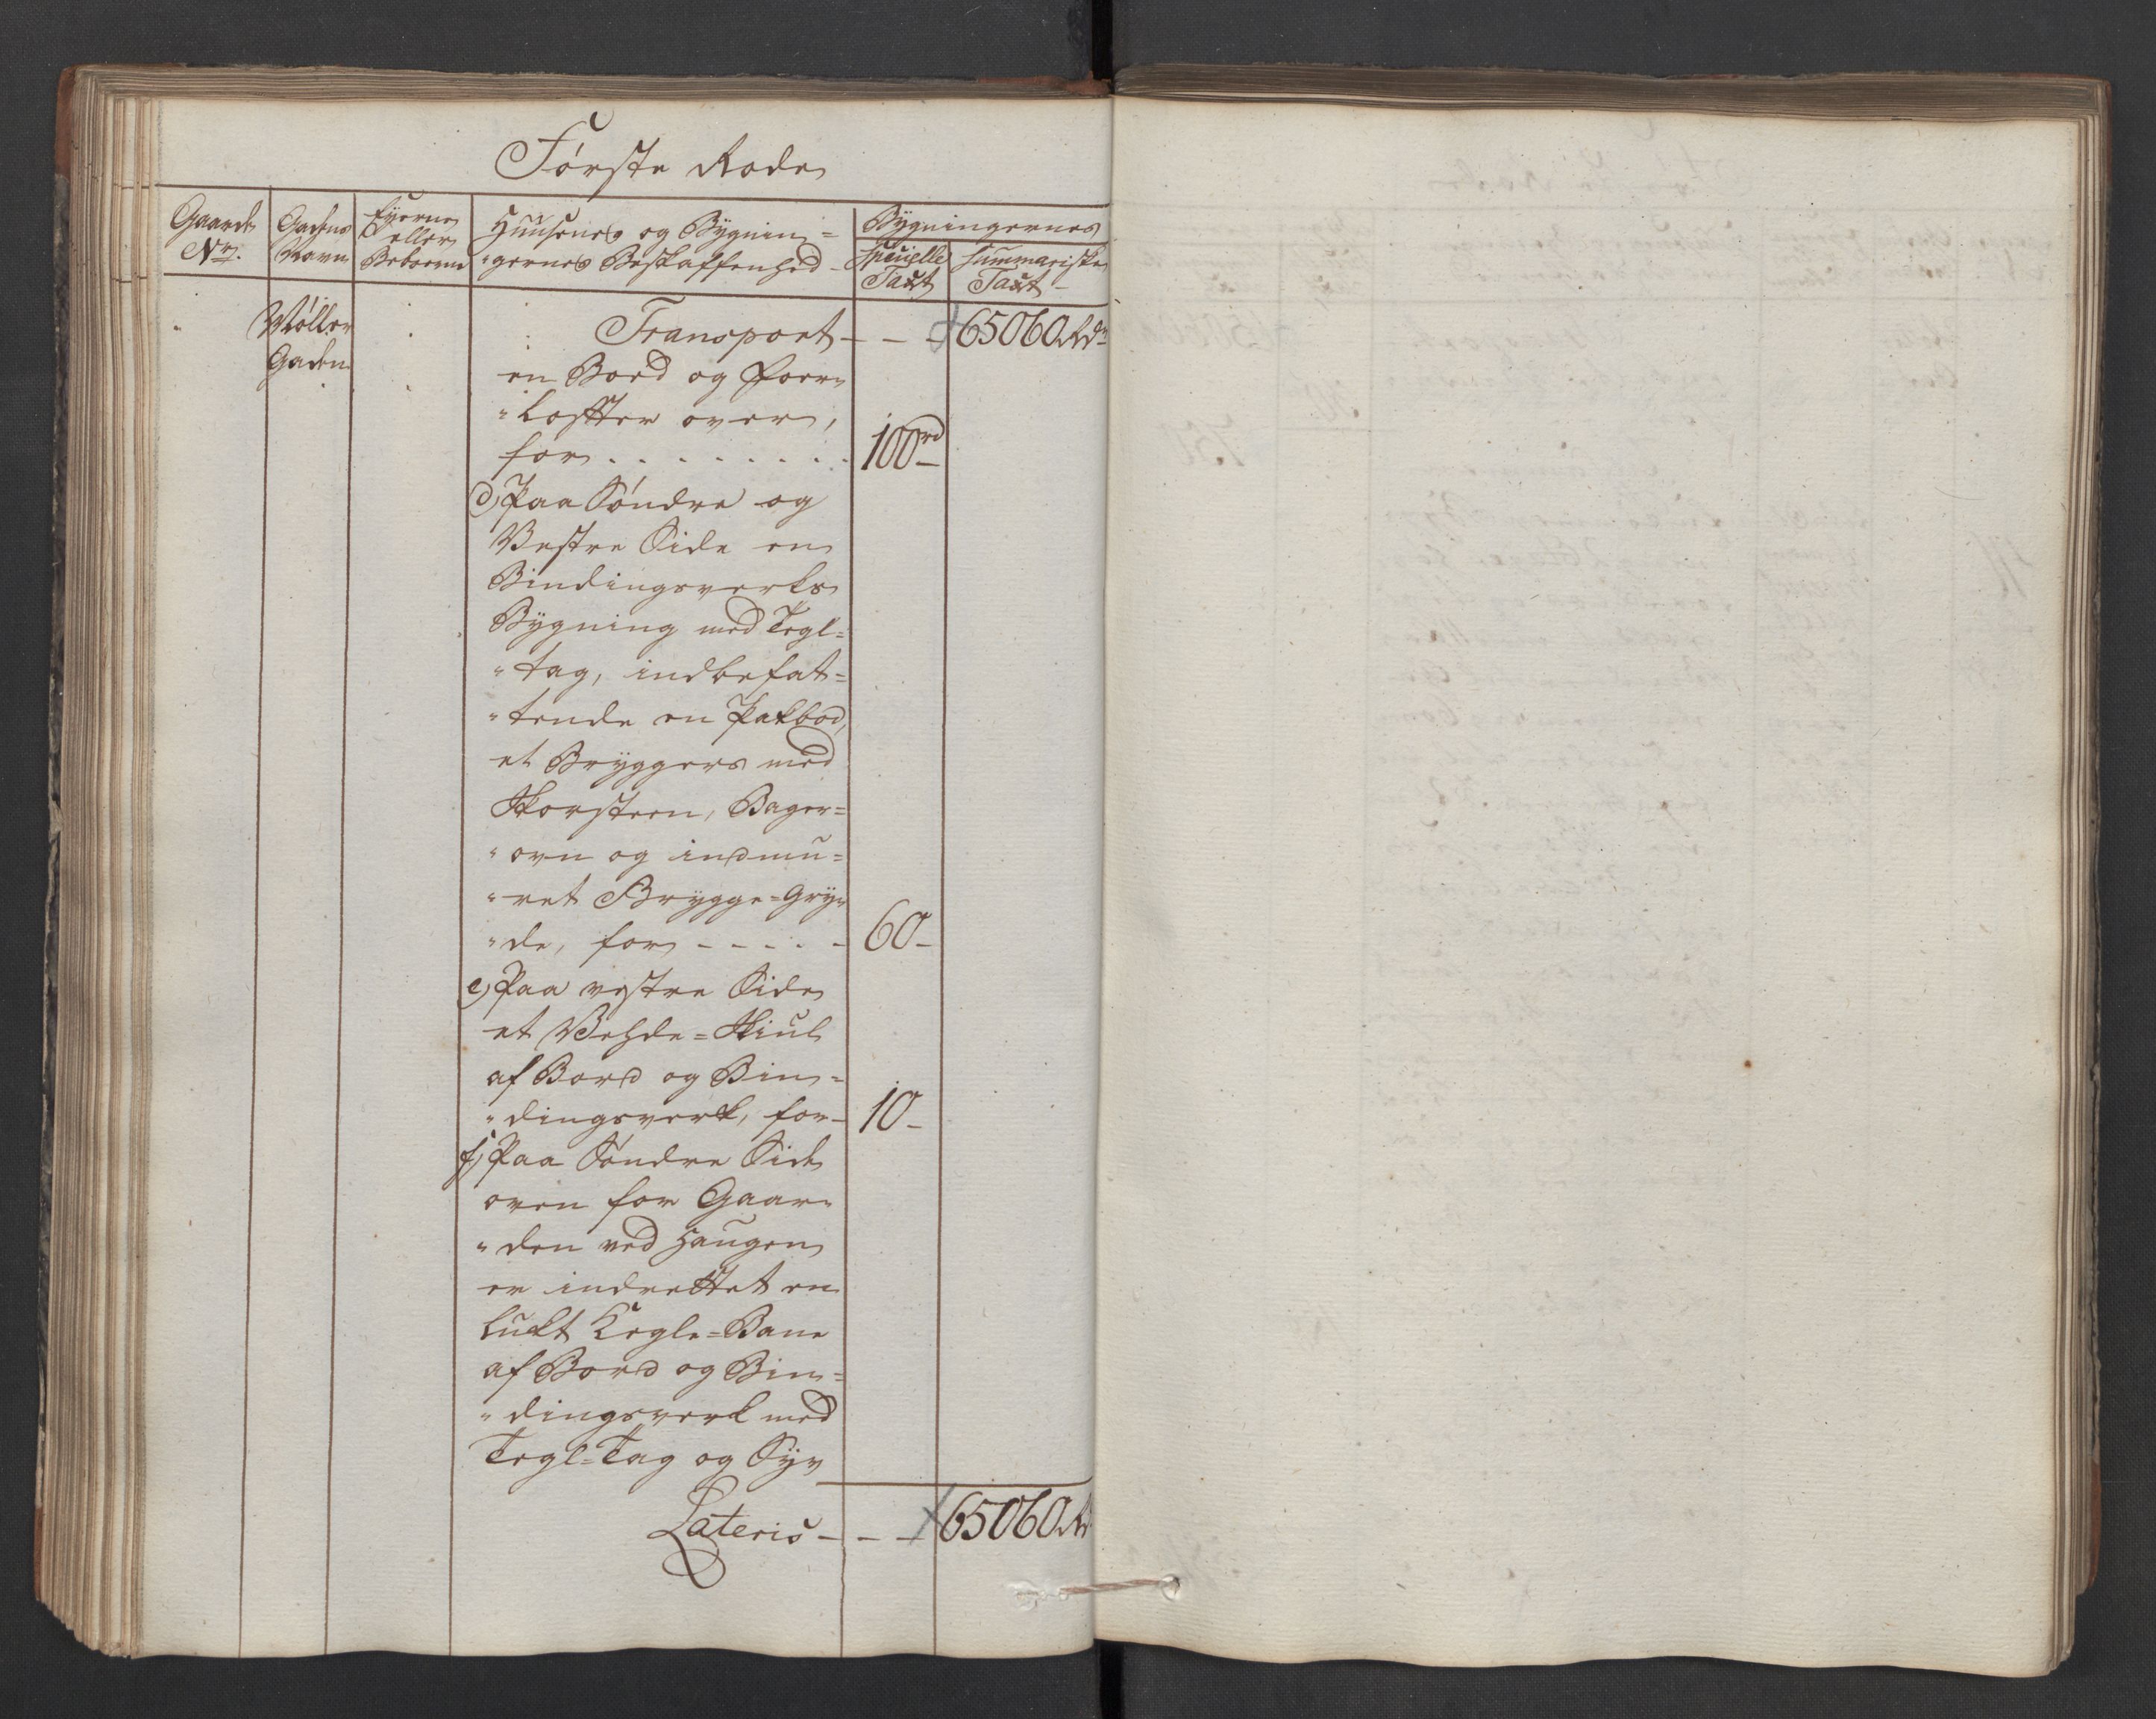 Første Rode
Gaarde
No.
Gadens
Navn
Eyerne
eller
Beboerne
Huusenes og Bygnin=
"gernes Beskaffenhed
Bygningernes
Specielle
Taxt
Summariske
Taxt
Møller
Gaden
Transport - - - 65060 Rdr
en Bord og Foer=
"Lofter over,
for . . . . . . . . 100rd
d, Paa Søndre og
Vestre Side en
Bindingsverks
Bygning med Tegl=
"tag, indbefat=
"tende en Pakbod,
et Bryggers med
Skorsteen, Bager=
"ovn og indmu=
"ret Brygge=Gry=
"de, for - - - - - 60-
e, Paa vestre Side
et Vehde=Skiul
af Bord og Bin=
"dingsverk, for- 10-
f, Paa Søndre Side
oven for Gaar=
"den ved Haugen
er indrettet en
lukt Kegle=Bane
af Bord og Bin=
"dingsverk med
Tegl=Tag og Syv
Lateris - - - 65060 Rd